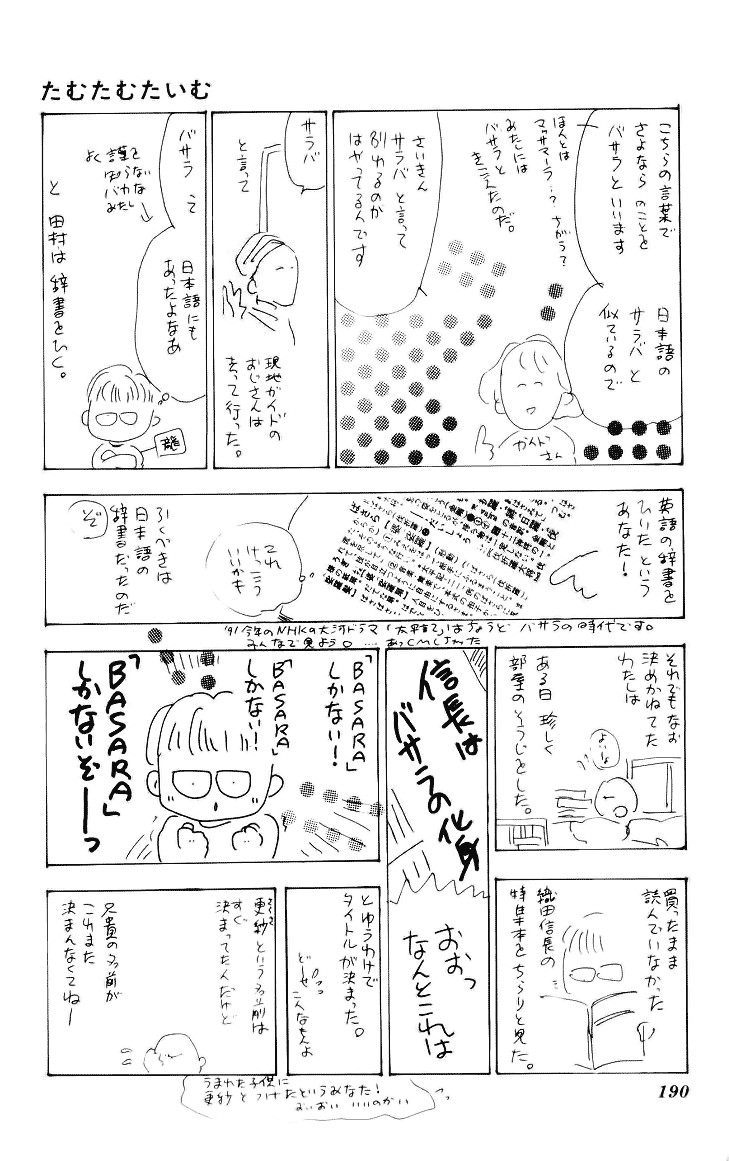 たむたむたいむ
こちらの言葉で
さよなら のことを
バサラといいます
ほんとは
マッサマーラ…? ちがう?
みたいには
バサラと
きこえたのだ。
日本語の
サラバ と
似ているので
さいきん
サラバ と言って
別れるのが
はやってるんです
ガイド
さん
サラバ
と言って
現地ガイドの
おじさんは
去って行った。
バサラ って
日本語にも
あったよなあ
と 田村は 辞書をひく。
龍
英語の辞書を
ひいた という
あなた!
これ
けっこう
いいかも
ひくべきは
日本語の
辞書だったのだ
ぞ
'91 今年のNHKの大河ドラマ「太平記」はちょうど バサラの時代です。
みんなで見よう。
それでもなお
決めかねてた
わたしは
ある日 珍しく
部屋のそうじをした。
よいな
買ったまま
読んでいなかった
織田信長の
特集本をちらりと見た。
信長は
バサラの化身
おおっ
なんとこれは
「BASARA」
しかない!
「BASARA」
しかない!
「BASARA」
しかないぞーっ
とゆうわけで
タイトルが決まった。
どーせ
こんなもんよ
更紗 という名前は
すぐ
決まってたんだけど
兄貴の名前が
これまた
決まんなくてねー
うまれた子供に
更紗と つけたというみなた!
おいおい いいのかい
190